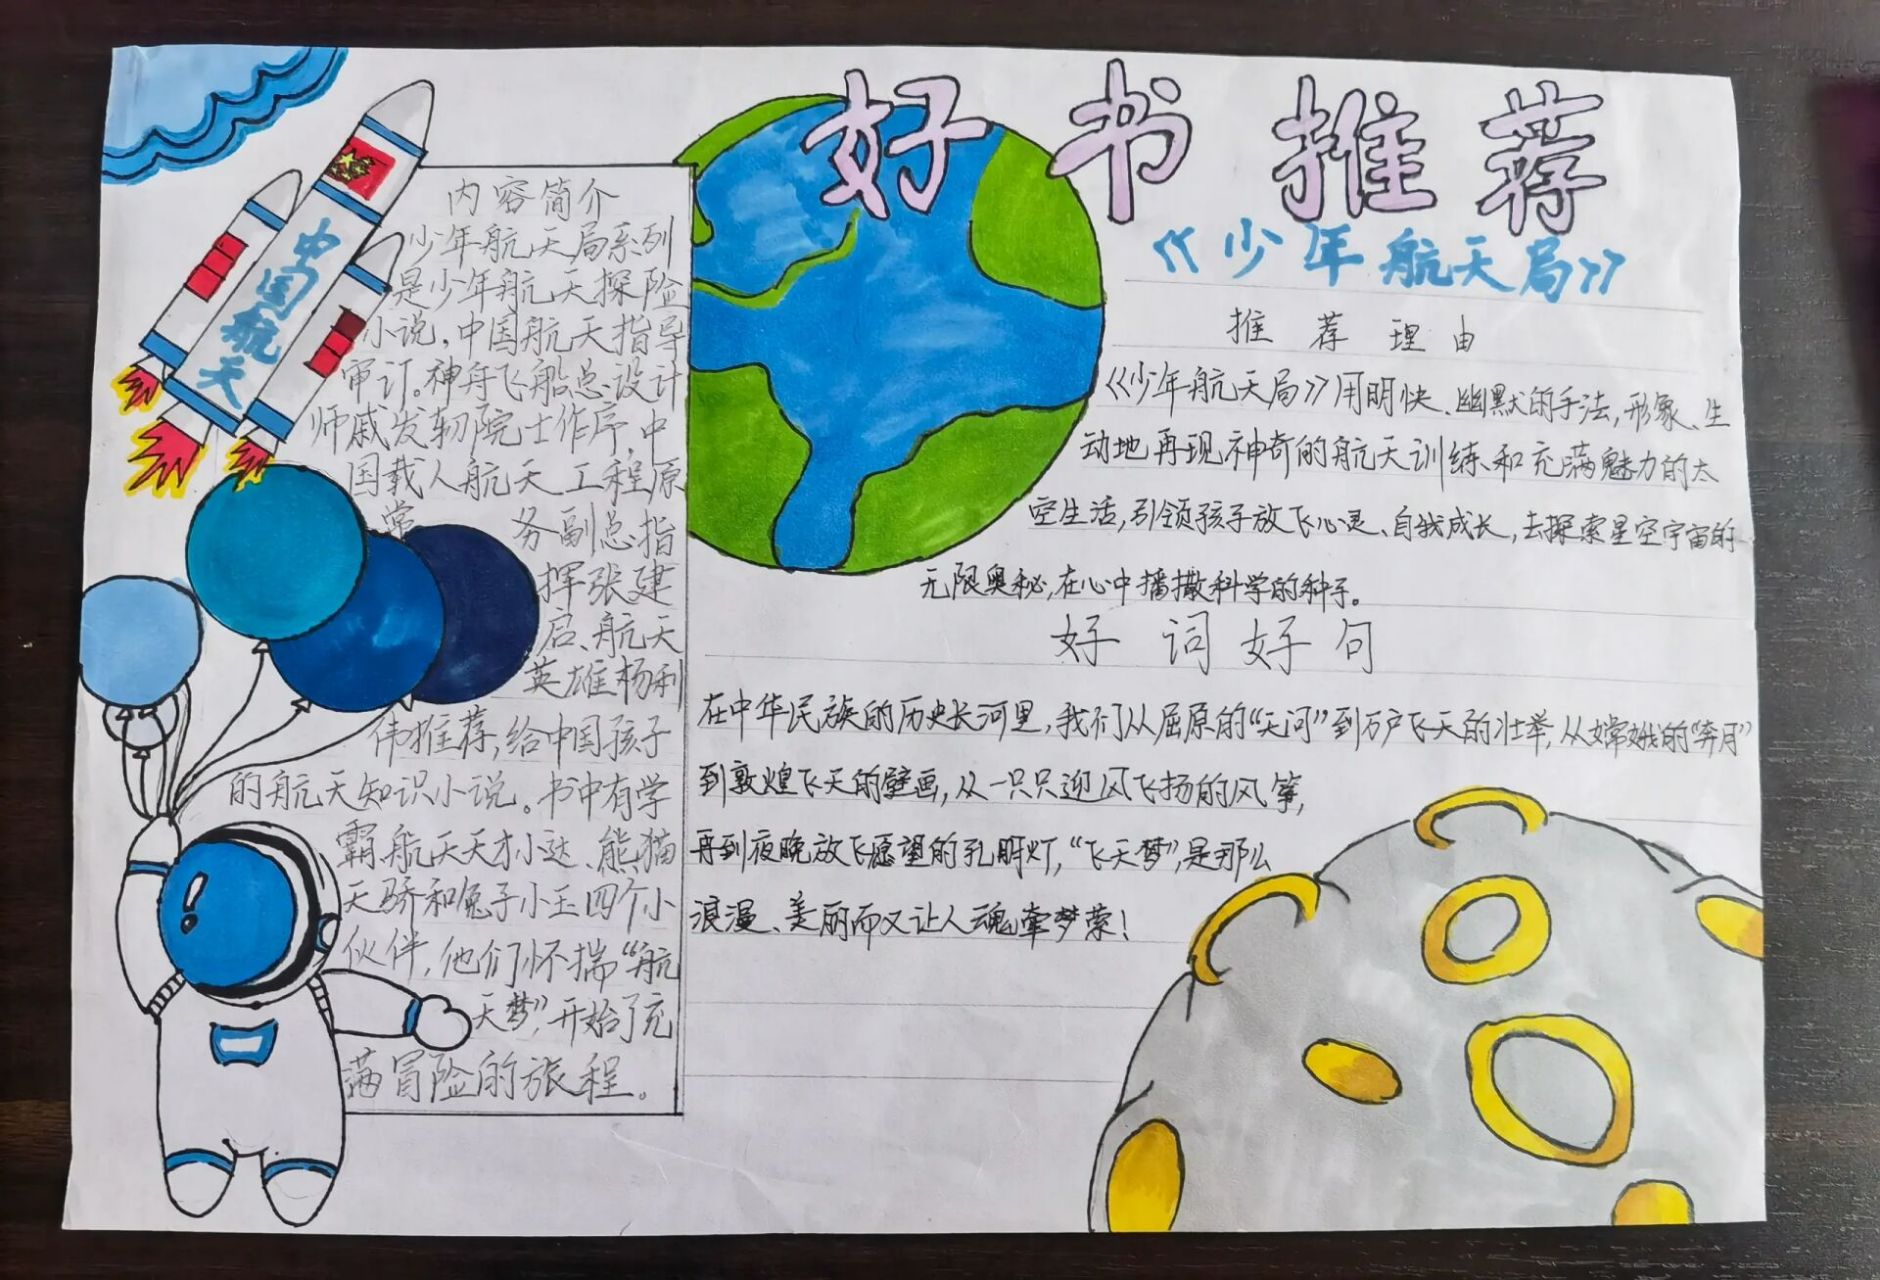 好书推荐
《少年航天局》
中国航天
内容简介
少年航天局系列
是少年航天探险
小说,中国航天指导
审订。神舟飞船总设计
师戚发轫院士作序,中
国载人航天工程原
常务副总指
挥张建
启、航天
英雄杨利
伟推荐,给中国孩子
的航天知识小说。书中有学
霸航天天才小达、熊猫
天骄和兔子小玉四个小
伙伴,他们怀揣“航
天梦”,开始了充
满冒险的旅程。
推荐理由
《少年航天局》用明快、幽默的手法,形象、生
动地再现神奇的航天训练和充满魅力的太
空生活,引领孩子放飞心灵、自我成长,去探索星空宇宙的
无限奥秘,在心中播撒科学的种子。
好词好句
在中华民族的历史长河里,我们从屈原的“天河”到万户飞天的壮举,从嫦娥的“奔月”
到敦煌飞天的壁画,从一只只迎风飞扬的风筝,
再到夜晚放飞愿望的孔明灯,“飞天梦”,是那么
浪漫、美丽而又让人魂牵梦萦!